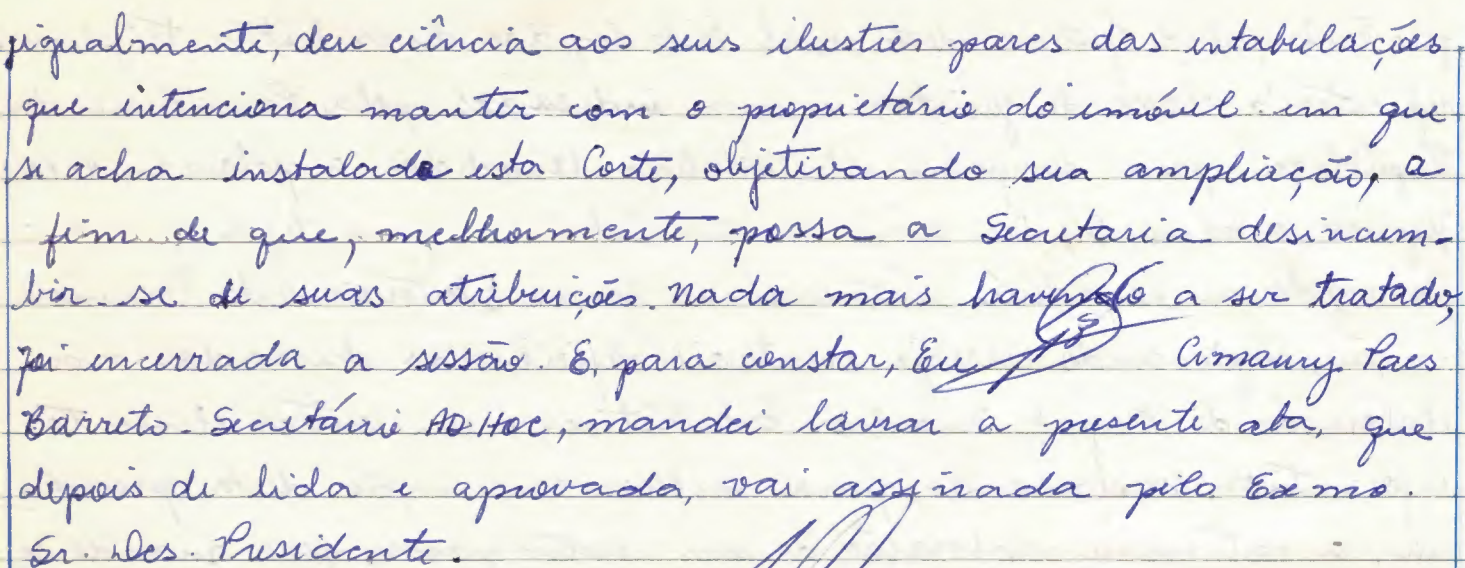 igualmente, deu ciência aos seus ilustres pares das entabulações
que intenciona manter com o proprietário do imóvel em que
se acha instalada esta Corte, objetivando sua ampliação, a
fim de que, melhormente, possa a Secretaria desincum-
bir-se de suas atribuições. Nada mais havendo a ser tratado,
foi encerrada a sessão. E, para constar, Eu Amaury Paes
Barreto. Secretário AD HOC, mandei lavrar a presente ata, que
depois de lida e aprovada, vai assinada pelo Exmo.
Sr. Des. Presidente.